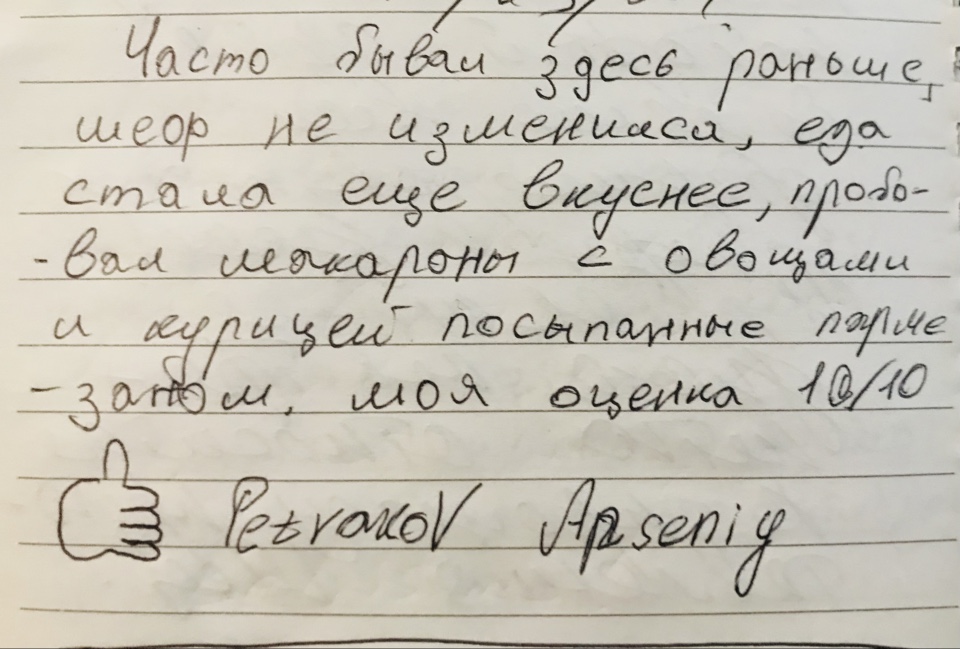 Часто бывал здесь раньше,
шеф не изменился, еда
стала еще вкуснее, пробо-
-вал макароны с овощами
и курицей посыпанные парме
-заном, моя оценка 10/10
Petrakov Apseniy